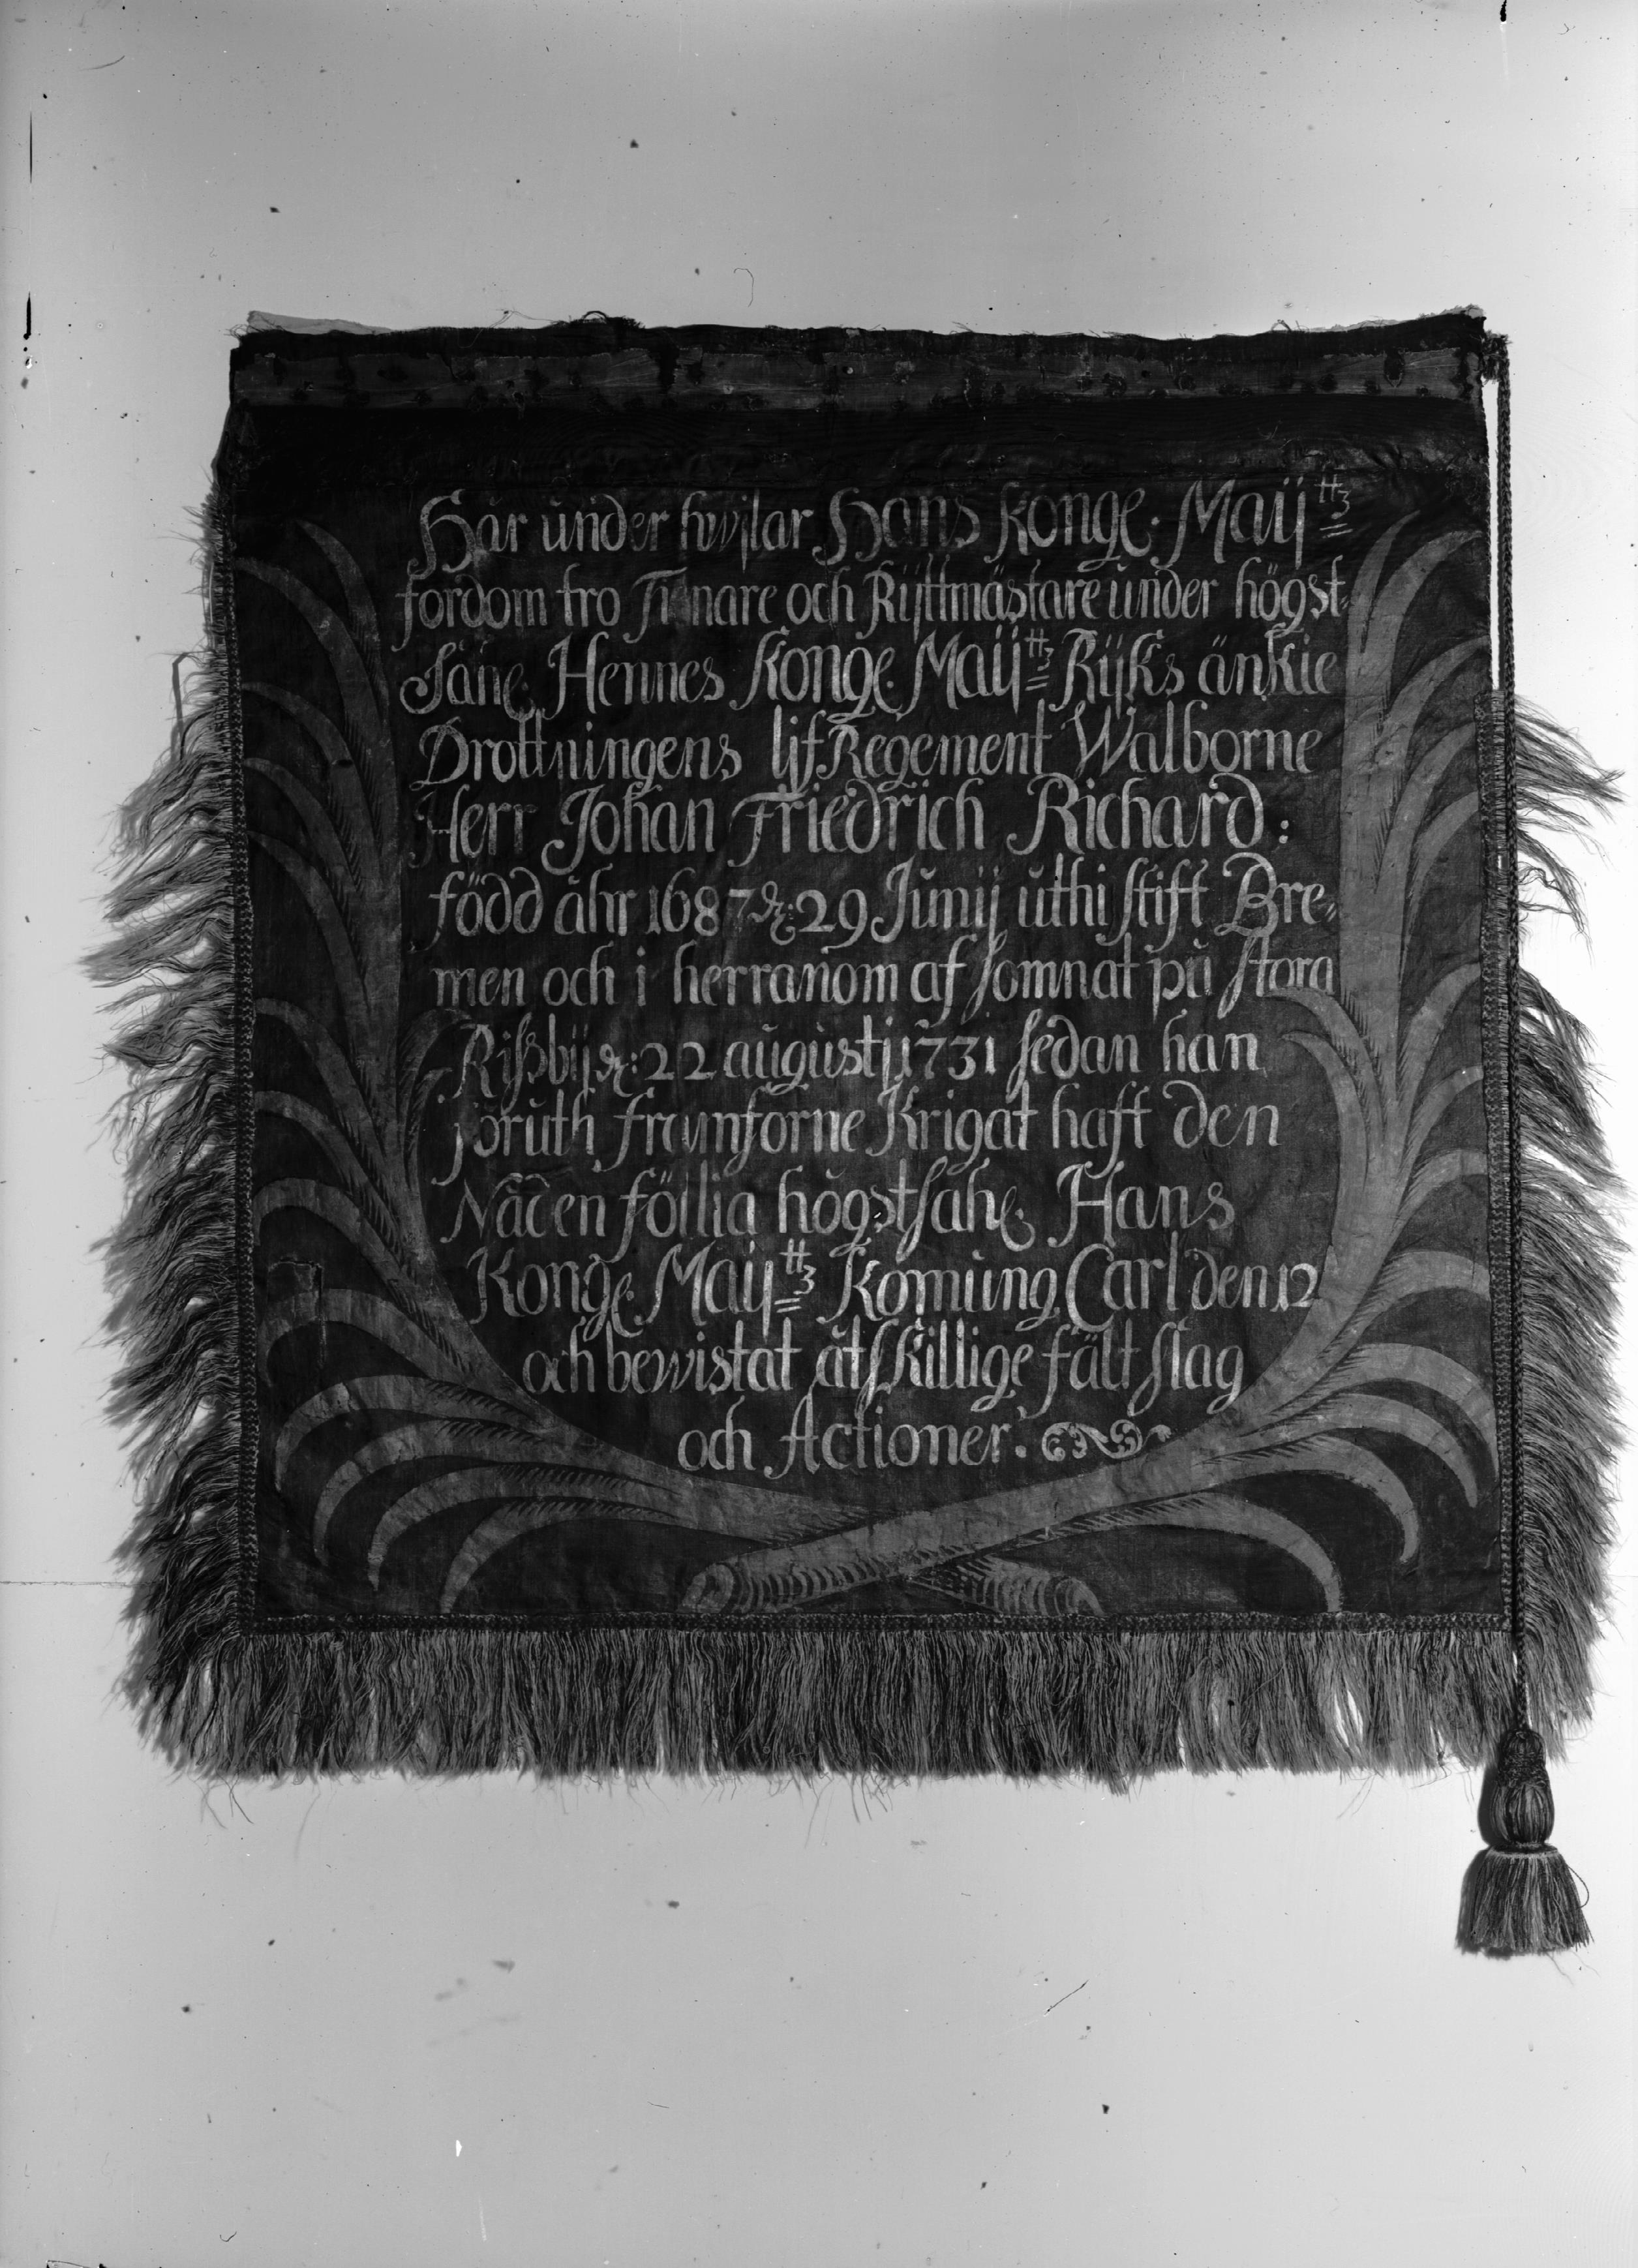 Här under hwijlar Hans Konge. Maÿ ttz
fordom tro Tienare och Rÿttmästare under högst=
Sahe. Hennes Konge. Maÿ ttz Rÿks änkie
Drottningens lif Regement Walborne
Herr Johan Friedrich Richard:
född åhr 1687 d: 29 Junij uthi stift Bre=
men och i herranom af somnat på stora
Rißbÿ d: 22 augustj 1731 sedan han
föruth framförne Krigat haft den
Nåden föllia högstsahe. Hans
Konge. Maÿ ttz Konnung Carl den 12
och bewistat åtskillige fält slag
och Actioner.